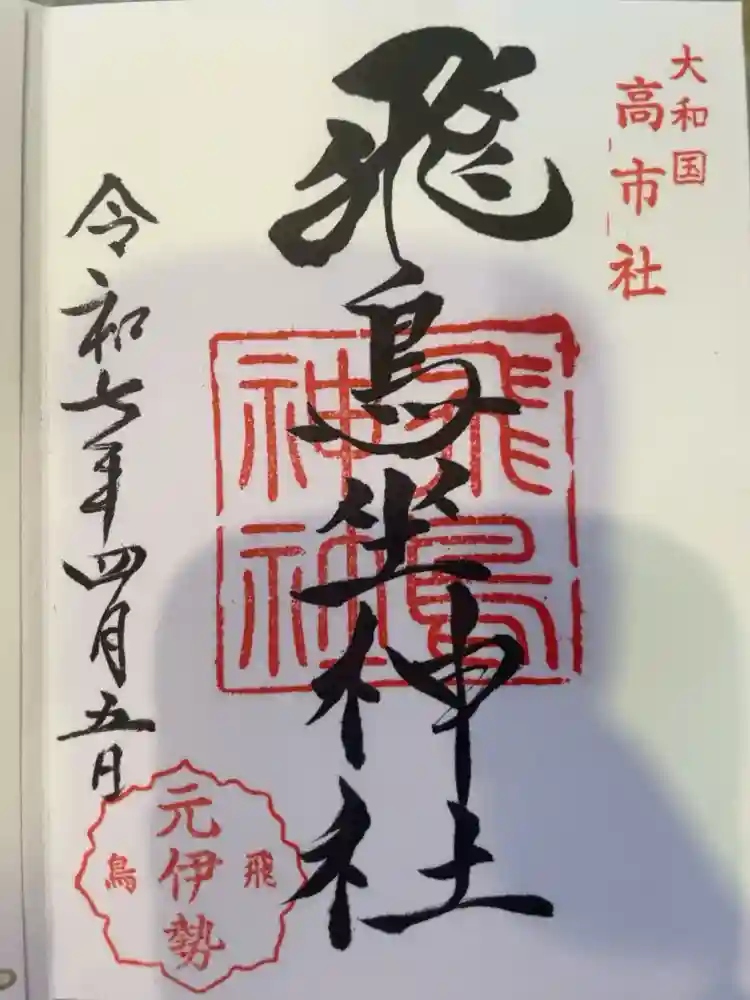 大和国
高市社
飛鳥坐神社
飛鳥
神社
令和七年四月五日
飛鳥
元伊勢